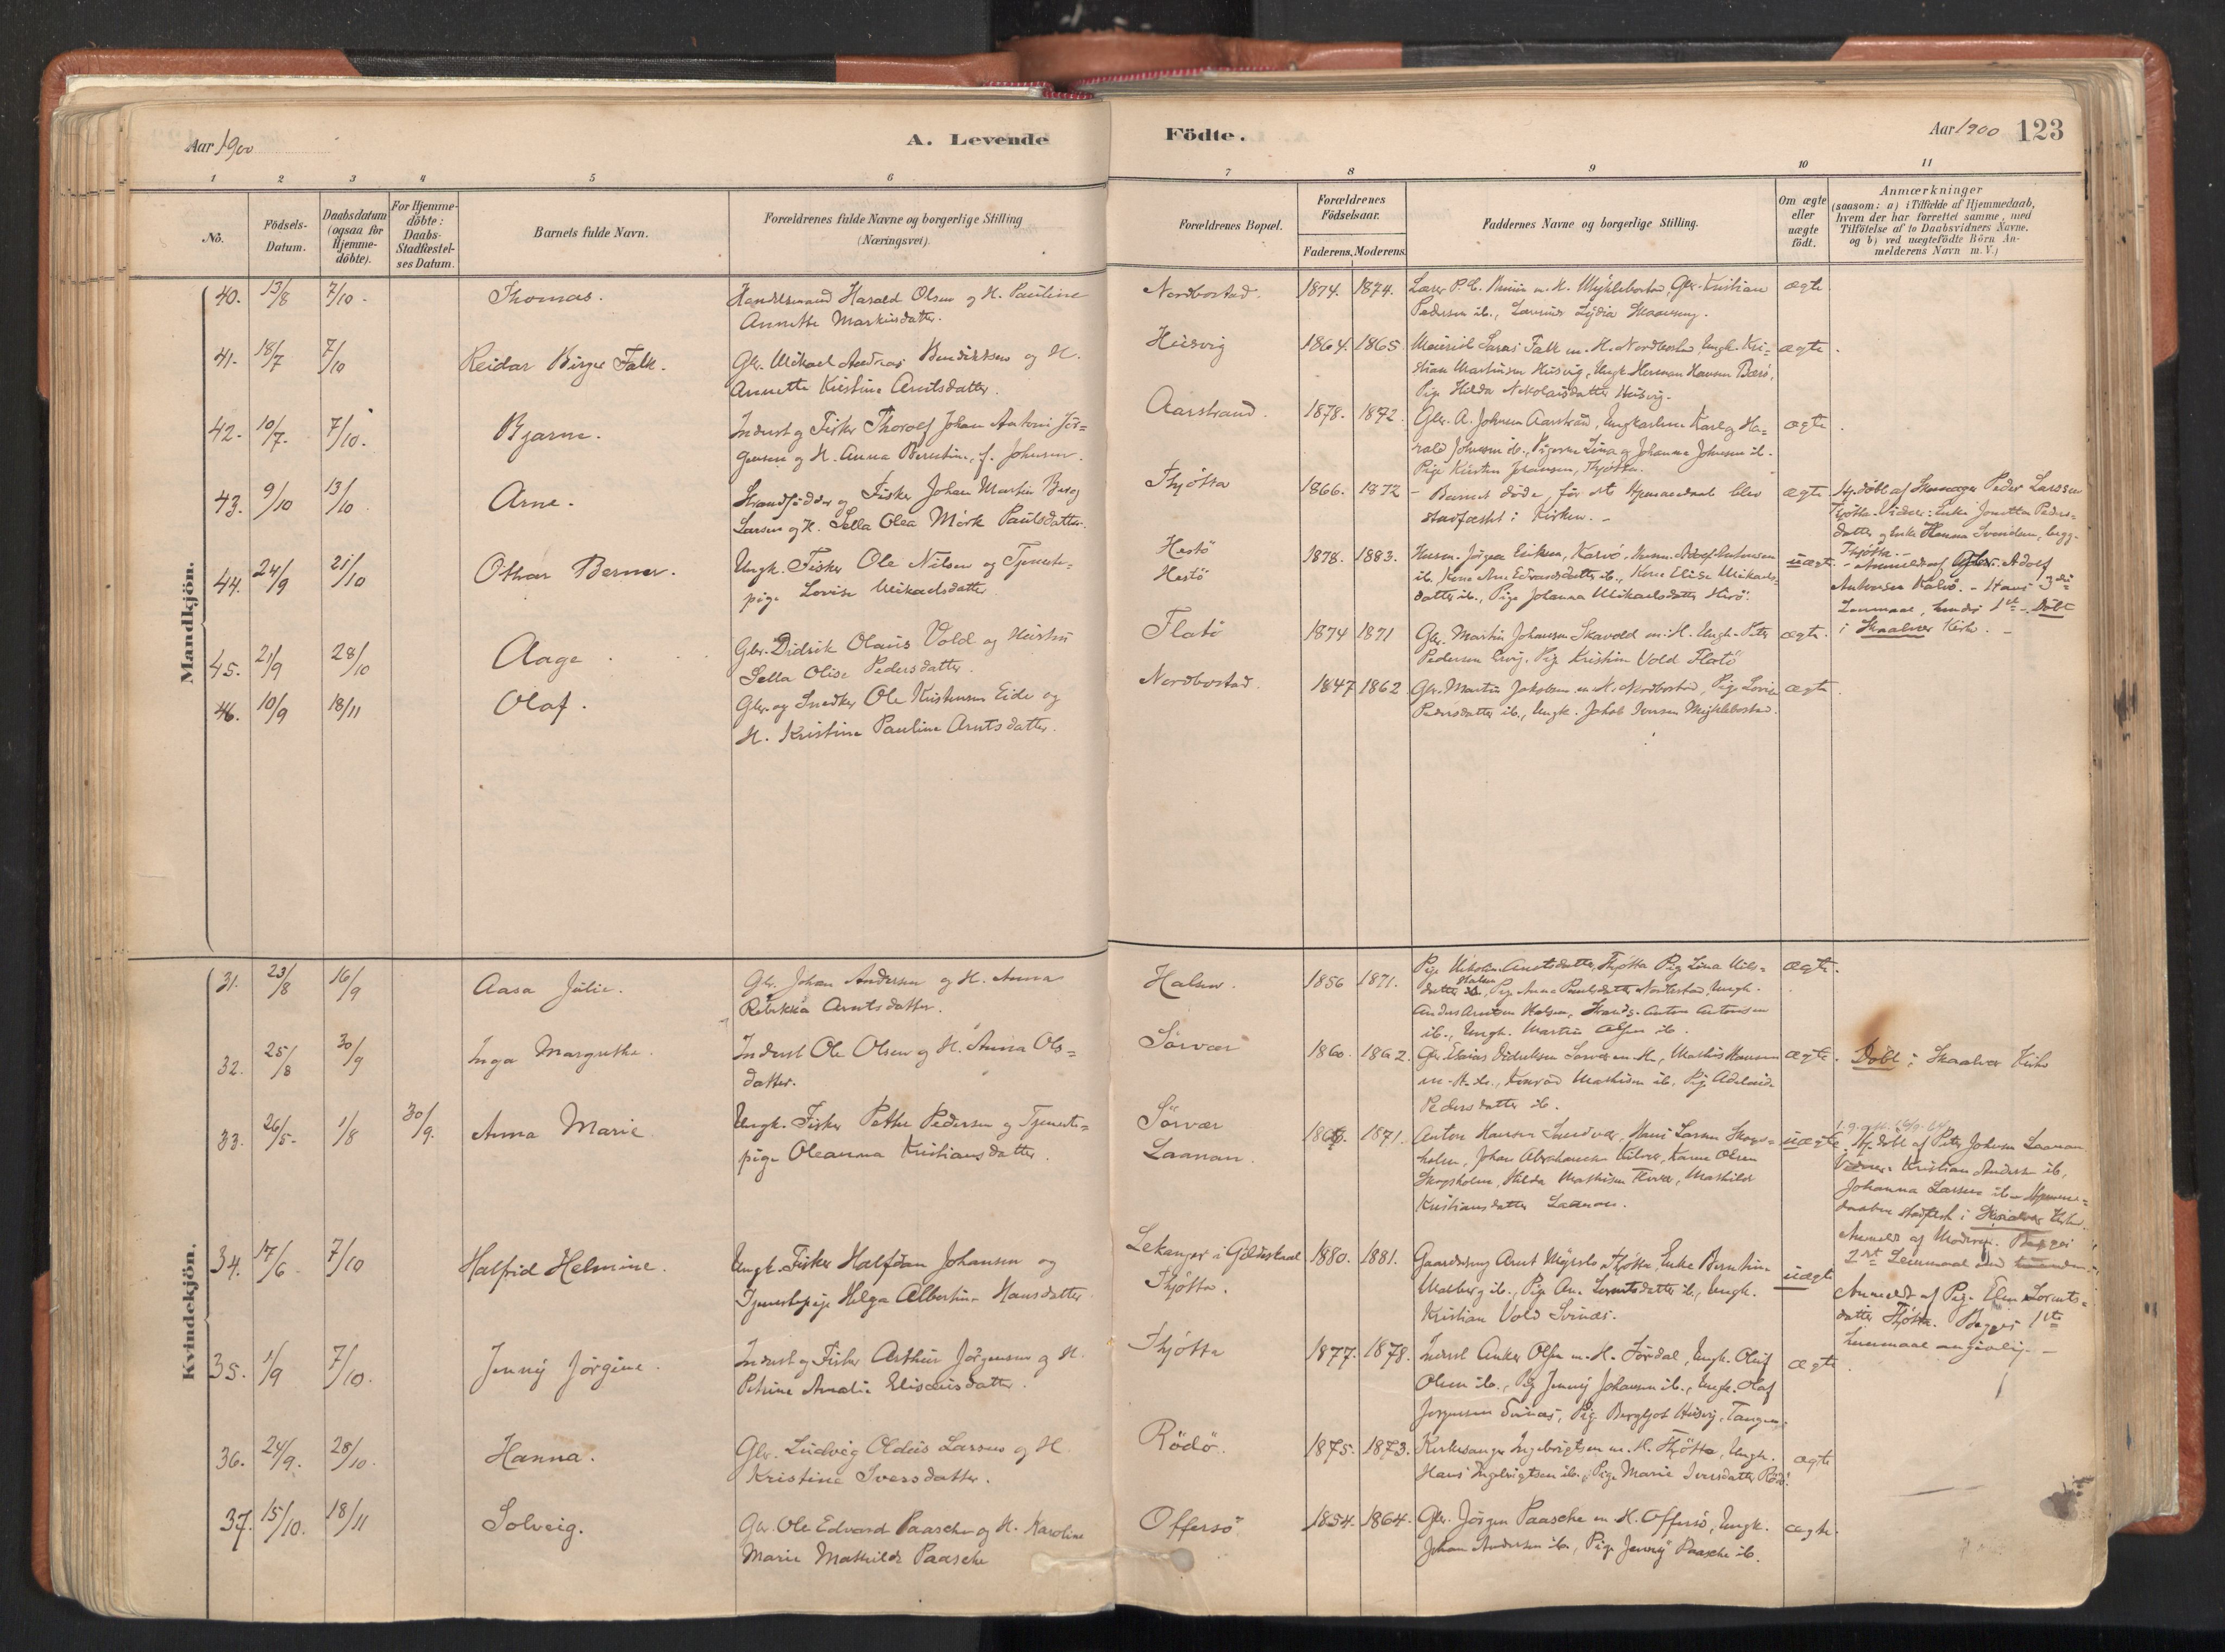 Aar 1900
A. Levende
Födte.
Aar 1900
123
1 2 3 4 5 6 7 8 9 10 11
No.
Födsels-
Datum.
Daabsdatum
(ogsaa for
Hjemme-
döbte).
For Hjemme-
döbte:
Daabs-
Stadfæstel-
ses Datum.
Barnets fulde Navn.
Forældrenes fulde Navne og borgerlige Stilling
(Næringsvei).
Forældrenes Bopæl.
Forældrenes
Födselsaar.
Faderens. Moderens.
Faddernes Navne og borgerlige Stilling.
Om ægte
eller
uægte
födt.
Anmærkninger
(saasom: a) i Tilfælde af Hjemmedaab,
hvem der har forrettet samme, med
Tilföielse af to Daabsvidners Navne,
og b) ved uægtefödte Börn An-
melderens Navn m. V.)
Mandkjön.
40. 13/8 7/10 Thomas.
Handelsmand Harald Olsen og H. Pauline
Annette Markusdatter.
Nordbostad. 1874. 1874.
m. H. Myklebostad, Gbr. Kristian
Pedersen ib., Lydia
ægte
41. 18/7 7/10 Reidar Birger Falk.
Gbr. Mikael Andreas Bendiktsen og H.
Annette Kirstine Arntsdatter.
Husvig 1864. 1865.
Falk m. H. Nordbostad, Ungk. Kri-
stian Martinsen Husvig, Ungk. Herman Hansen
Pige Hilda Nikolaisdatter Husvig.
ægte.
42. 10/7. 7/10. Bjarne.
Inderst og Fisker Thorolf Johan Antoni Jör-
gensen og H. Anna Berntine, f. Johnsen.
Aarstrand. 1878. 1872.
Gbr. A. Johnsen Aarstrand, Ungkarlene Karl og Ha-
rald Johnsen ib., Pigerne Lina og Johanna Johnsen ib.
Pige Kirsten Johansen, Thjötta.
ægte
43. 9/10 13/10 Arne.
Strandsidder og Fisker Johan Martin Berg
Larsen og H. Sella Olea Mörk Paulsdatter.
Thjötta 1866. 1872
- Barnet döde, för dets Hjemmedaab blev
stadfæstet i Kirken. -
ægte
Hj.döbt af Skomager Peder Larsen
Thjötta. Vidner: Enke Jonetta Peders-
datter og Enke Hanna Svendsen, begge
Thjötta. -
44. 24/9 21/10 Othar Berner.
Ungk. Fisker Ole Nilsen og Tjeneste-
pige Lovise Mikaelsdatter
Hestö
Hestö
1878. 1883.
Husm. Jörgen Eriksen, Kalvö, Husm. Adolf Antonsen
ib., Kone Ane Edvardsdatter ib., Kone Elise Mikaels-
datter ib., Pige Johanna Mikaelsdatter
uægte
- Anmeldt af Adolf
Antonsen Kalvö. - Hans 3die
Leiermaal, hendes 1ste. Döbt
i Skaalvær Kirke. -
45. 21/9 28/10 Aage.
Gbr. Didrik Olaus Vold og Hustru
Sella Olise Pedersdatter.
Flatö 1874 1871
Gbr. Martin Johansen Skavold m. H. Ungk. Peter
Pedersen Pige Kristine Vold Flatö
ægte.
46. 10/9 18/11 Olaf.
Gbr. og Snedker Ole Kristensen Eide og
H. Kristine Pauline Arntsdatter.
Nordbostad. 1847 1862
Gbr. Martin Jakobsen m. H. Nordbostad, Pige Lovise
Pedersdatter ib., Ungk. Jakob Iversen Myklebostad.
ægte.
Kvindekjön.
31. 23/8 16/9 Aasa Julie.
Gbr. Johan Andersen og H. Anna
Rebekka Arntsdatter.
Halsen. 1856 1871.
Pige Nikoline Arntsdatter, Thjötta Pige Lina Nils-
datter Halsen, Pige Anna Paulsdatter Nordbostad, Ungk.
Anders Arntsen Halsen, Strands. Anton Antonsen
ib., Ungk. Martin Olsen ib.
ægte.
32. 25/8 30/9 Inga Margrethe.
Inderst Ole Olsen og H. Anna Ols-
datter.
Sörvær 1860. 1862.
Gbr. Esaias Didriksen Sörvær m. H., Mathias Hansen
m. H. ib., Konrad Mathisen ib., Pige Adelaide
Pedersdatter ib.
ægte.
Döbt i Skaalvær Kirke
33. 26/5 1/8 30/9. Anna Marie
Ungk. Fisker Petter Pedersen og Tjeneste-
pige Oleanna Kristiansdatter.
Sörvær
Laanan.
1871.
Anton Hansen Hans Larsen Skogs-
holm, Johan Abrahamsen Karen Olsen
Skogsholm, Hilda Mathisen Mathilde
Kristiansdatter Laanan.
uægte
Hj. döbt af Peter Johnsen Laanan
Vidner: Kristian Andersen ib.
Johanna Larsen ib. Hjemme-
daaben stadfæst. i Skaalvær Kirke.
Anmeldt af Moderen. Begges
2det Leiermaal
34. 17/6 7/10 Halfrid Helmine.
Ungk. Fisker Halfdan Johansen og
Tjenestepige Helga Albertine Hansdatter
Lekanger i Gildeskaal
Thjötta.
1880. 1881.
Gaardbrug Arnt Thjötta, Enke Berntine
Malberg ib., Pige Ane Lorntsdatter ib., Ungk.
Kristian Vold Svinæs.
uægte
Anmeldt af Pige Elen Lornts-
datter Thjötta. Begges 1ste
Leiermaal angivelig. -
35. 1/9 7/10. Jenny Jörgine.
Inderst og Fisker Arthur Jörgensen og H.
Petrine Amalie Elisæusdatter.
Thjötta 1877. 1878.
Inderst Anker Olsen m. H. Ungk. Oluf
Olsen ib., Pige Jenny Johansen ib., Ungk. Olaf
Jörgensen Svinæs, Pige Bergljot Husvig, Tangen.
ægte.
36. 24/9. 28/10. Hanna.
Gbr. Ludvig Oldus Larsen og H.
Kristine Iversdatter.
Rödö. 1875. 1873.
Kirkesanger Ingebrigtsen m. H. Thjötta, Ungk.
Hans Ingebrigtsen ib., Pige Marie Iversdatter Rödö.
ægte
37. 15/10. 18/11 Solveig.
Gbr. Ole Edvard Paasche og H. Karoline
Marie Mathilde Paasche
Offersö 1854. 1864.
Gbr. Jörgen Paasche m. H. Offersö, Ungk.
Johan Andersen ib., Pige Jenny Paasche ib.
ægte.